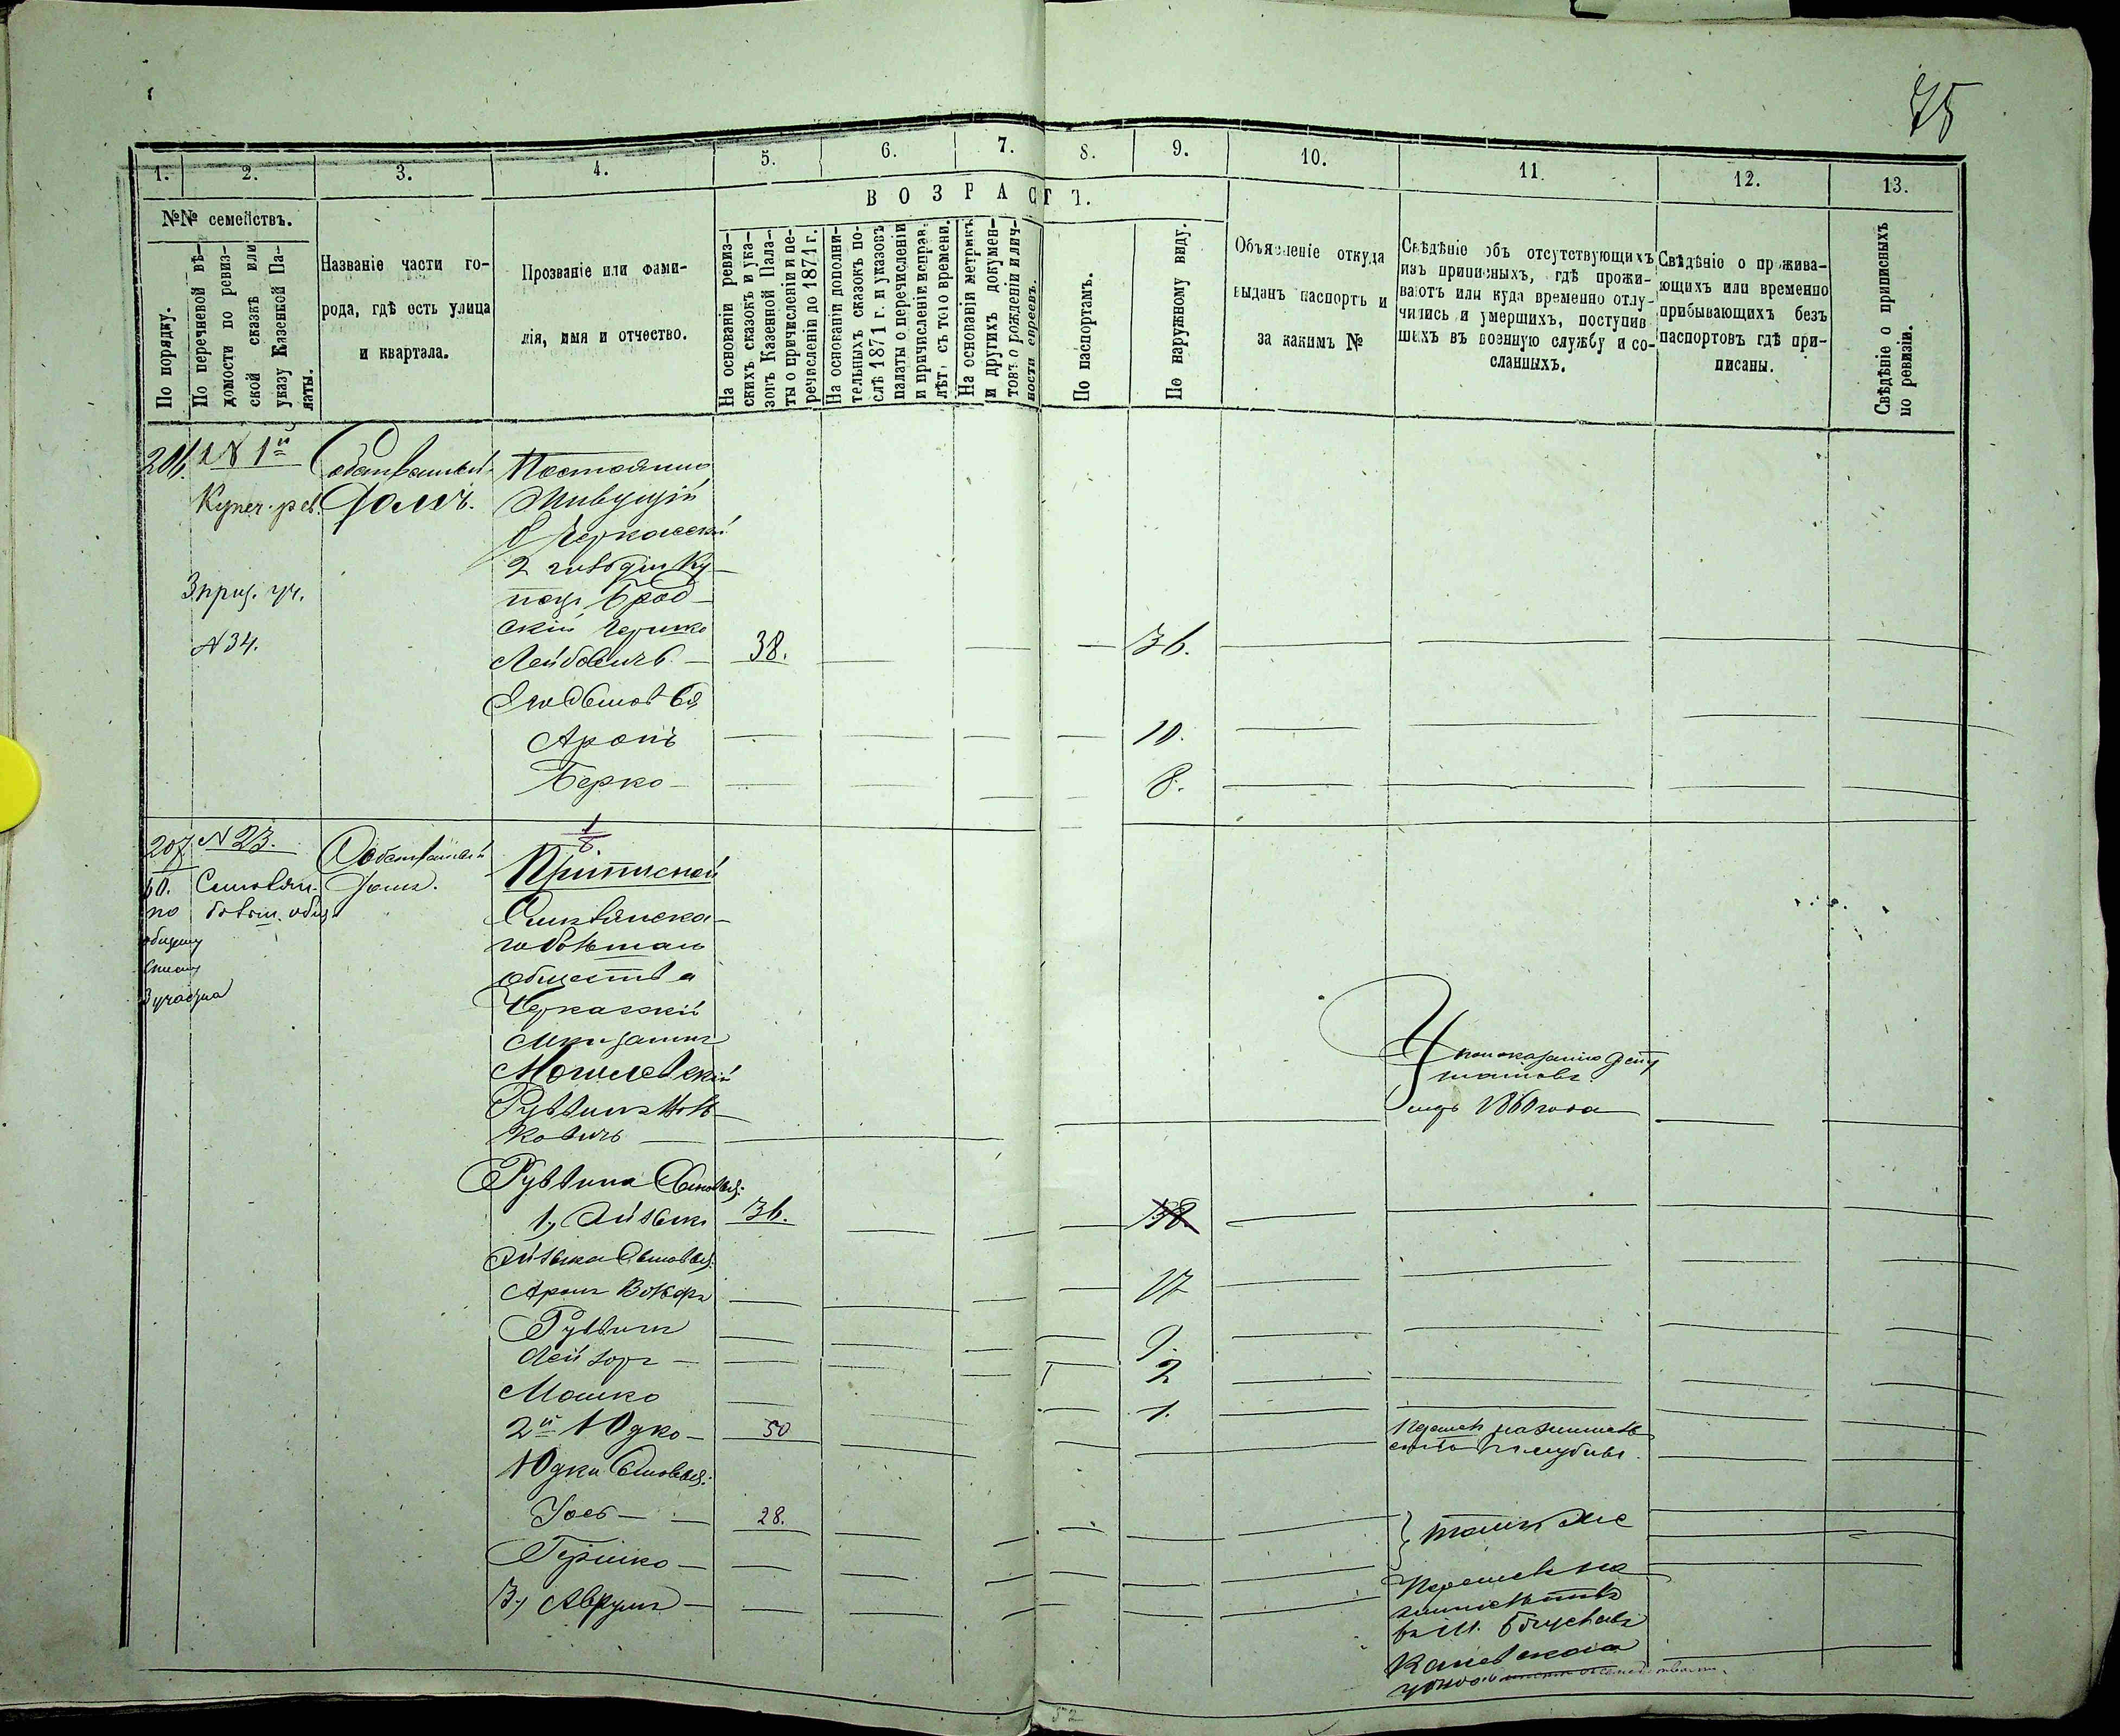 75
1.
2.
3.
4.
5.
6.
7.
8.
9.
10.
11.
12.
13.
№№ семействъ.
По порядку.
По перечневой вѣ-
домости по ревиз-
ской сказкѣ или
указу Казенной Па-
латы.
Названіе части го-
рода, гдѣ есть улица
и квартала.
Прозваніе или фами-
лія, имя и отчество.
ВОЗРАСТЪ.
На основаніи ревиз-
скихъ сказокъ и ука-
зовъ Казенной Пала-
ты о причисленіи и пе-
речисленіи до 1871 г.
На основаніи дополни-
тельныхъ сказокъ по-
слѣ 1871 г. и указовъ
палаты о перечисленіи
и причисленіи исправ.
лѣт, съ того времени.
На основаніи метрикъ
и другихъ докумен-
товъ о рожденіи и лич-
ности евреевъ.
По паспортамъ.
По наружному виду.
Объясненіе откуда
выданъ паспортъ и
за какимъ №
Свѣдѣніе объ отсутствующихъ
изъ приписныхъ, гдѣ прожи-
ваютъ или куда временно отлу-
чились и умершихъ, поступив
шихъ въ военную службу и со-
сланныхъ.
Свѣдѣніе о прожива-
ющихъ или временно
прибывающихъ безъ
паспортовъ гдѣ при-
писаны.
Свѣдѣніе о приписныхъ
по ревизіи.
206.
Купеч. рев.
3 приз. уч.
№ 34.
Собственный
домъ.
Постоянно
Живущій
Черкасскі
2 гильдіи Ку-
пецъ Брод-
скій Гершко
Лейбовичъ — 38. 36.
Его Сыновья
Аронъ 10.
Берко 8.
207 № 23.
60.
по
общему
списку
3 участка
Смѣлян.
общ
Собственный
домъ.
Приписной
Смѣлянска-
го
общества
Черкаскій
Мѣщанинъ
Могилевскій
Рувинъ
ковичъ
По показанію депу
татовъ
1860 года
Рувина Сыновья:
1, Айзикъ 36. 38
Айзика Сыновья:
Аронъ 17
Рувинъ 9.
Лейзоръ 2
Мошко 1.
2й Юдко — 50
Юдки Сыновья:
Іось — 28.
тамъ же
Гершко
3, Аврумъ
Перешелъ на
жительство
въ м. Богуславъ
Каневскаго
уѣзда
52